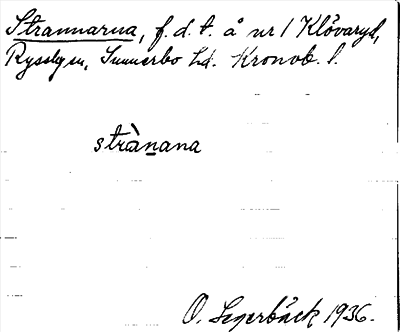 Strannarna, f.d.t. å nr 1 Klövaryd,
Ryssbyn, Sunnerbo hd. Kronob. l.
stràn̲ana
O. Segerbäck 1936.